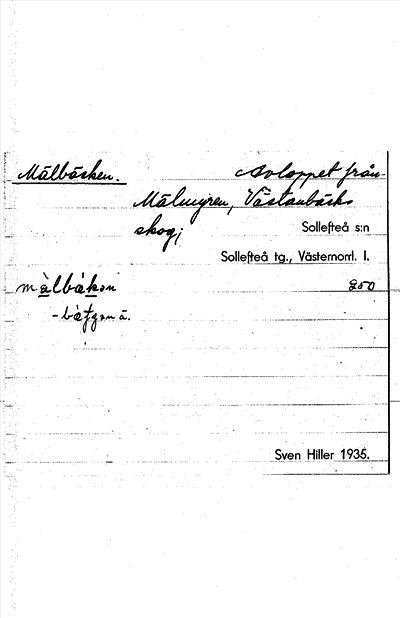 Målbäcken. Avloppet från
Målmyren, Västanbäcks
skog;
Sollefteå s:n
Sollefteå tg., Västernorrl. l.
250
Sven Hiller 1935.